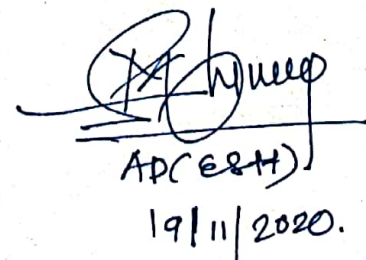 AD(ESH)
19/11/2020.